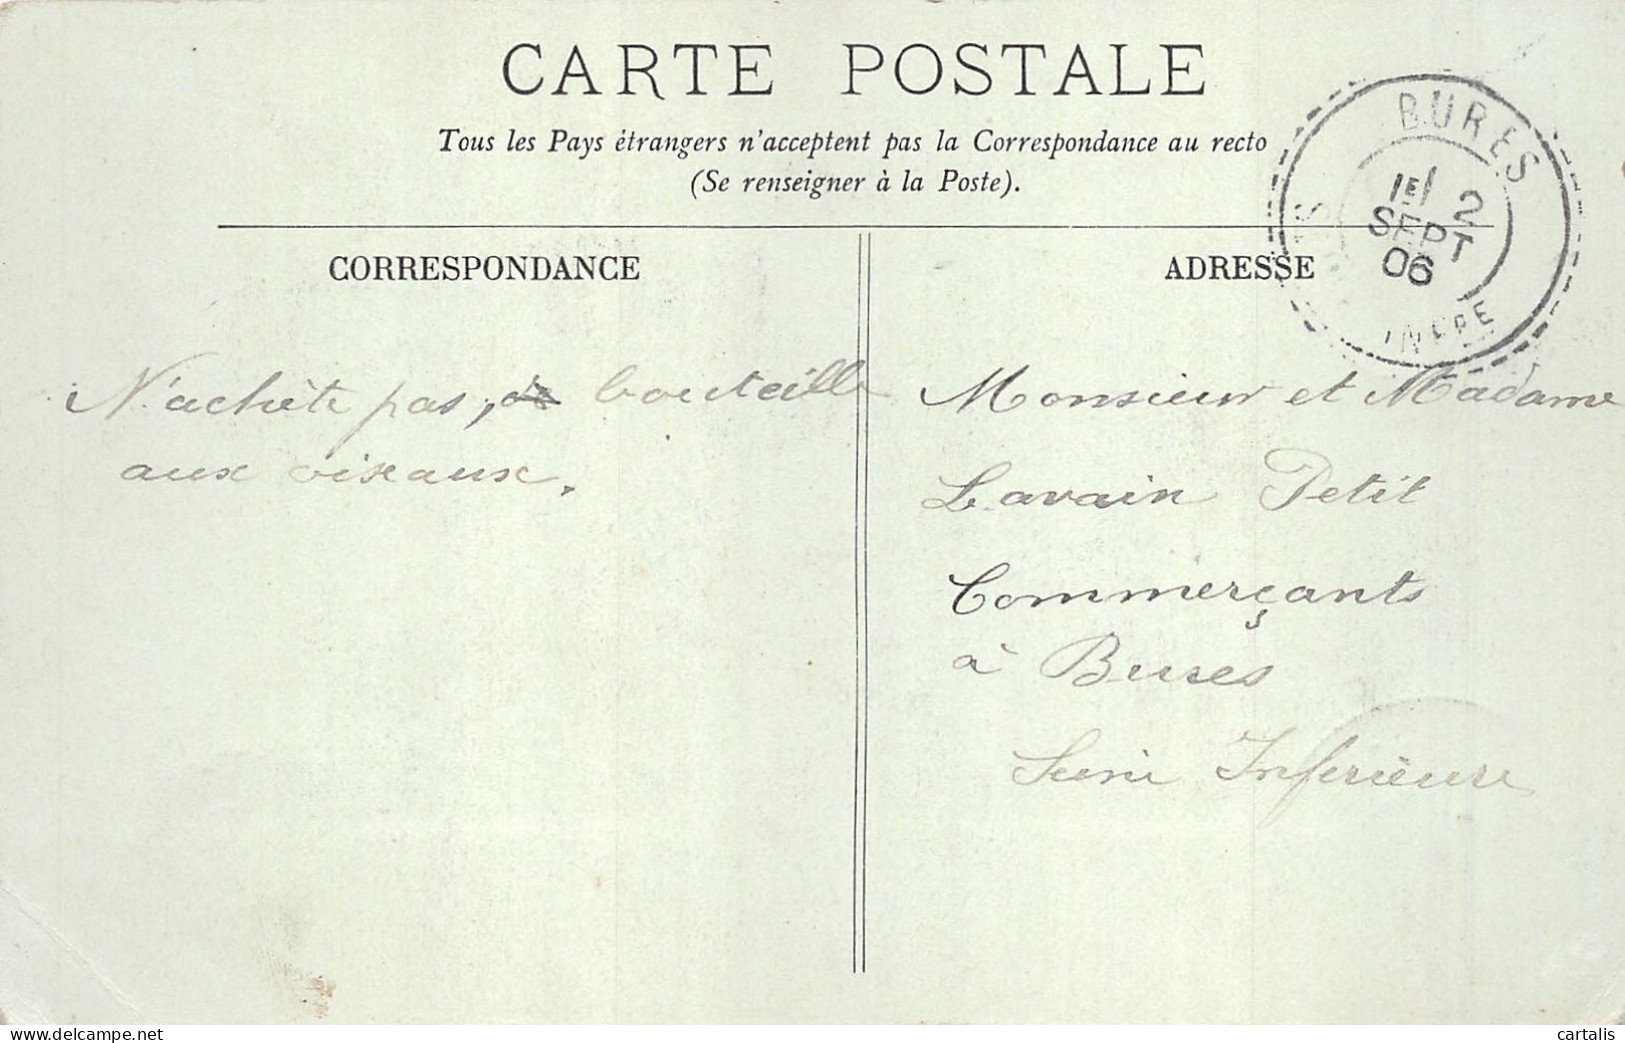 CARTE POSTALE
Tous les Pays étrangers n'acceptent pas la Correspondance au recto
(Se renseigner à la Poste).
BURES
1E/ 2
SEPT
06
INFRE
CORRESPONDANCE
N'achète pas, de bouteille
aux oiseaux.
ADRESSE
Monsieur et Madame
Lavain Petit
Commerçants
à Bures
Seine Inférieure
www.delcampe.net
cartalis